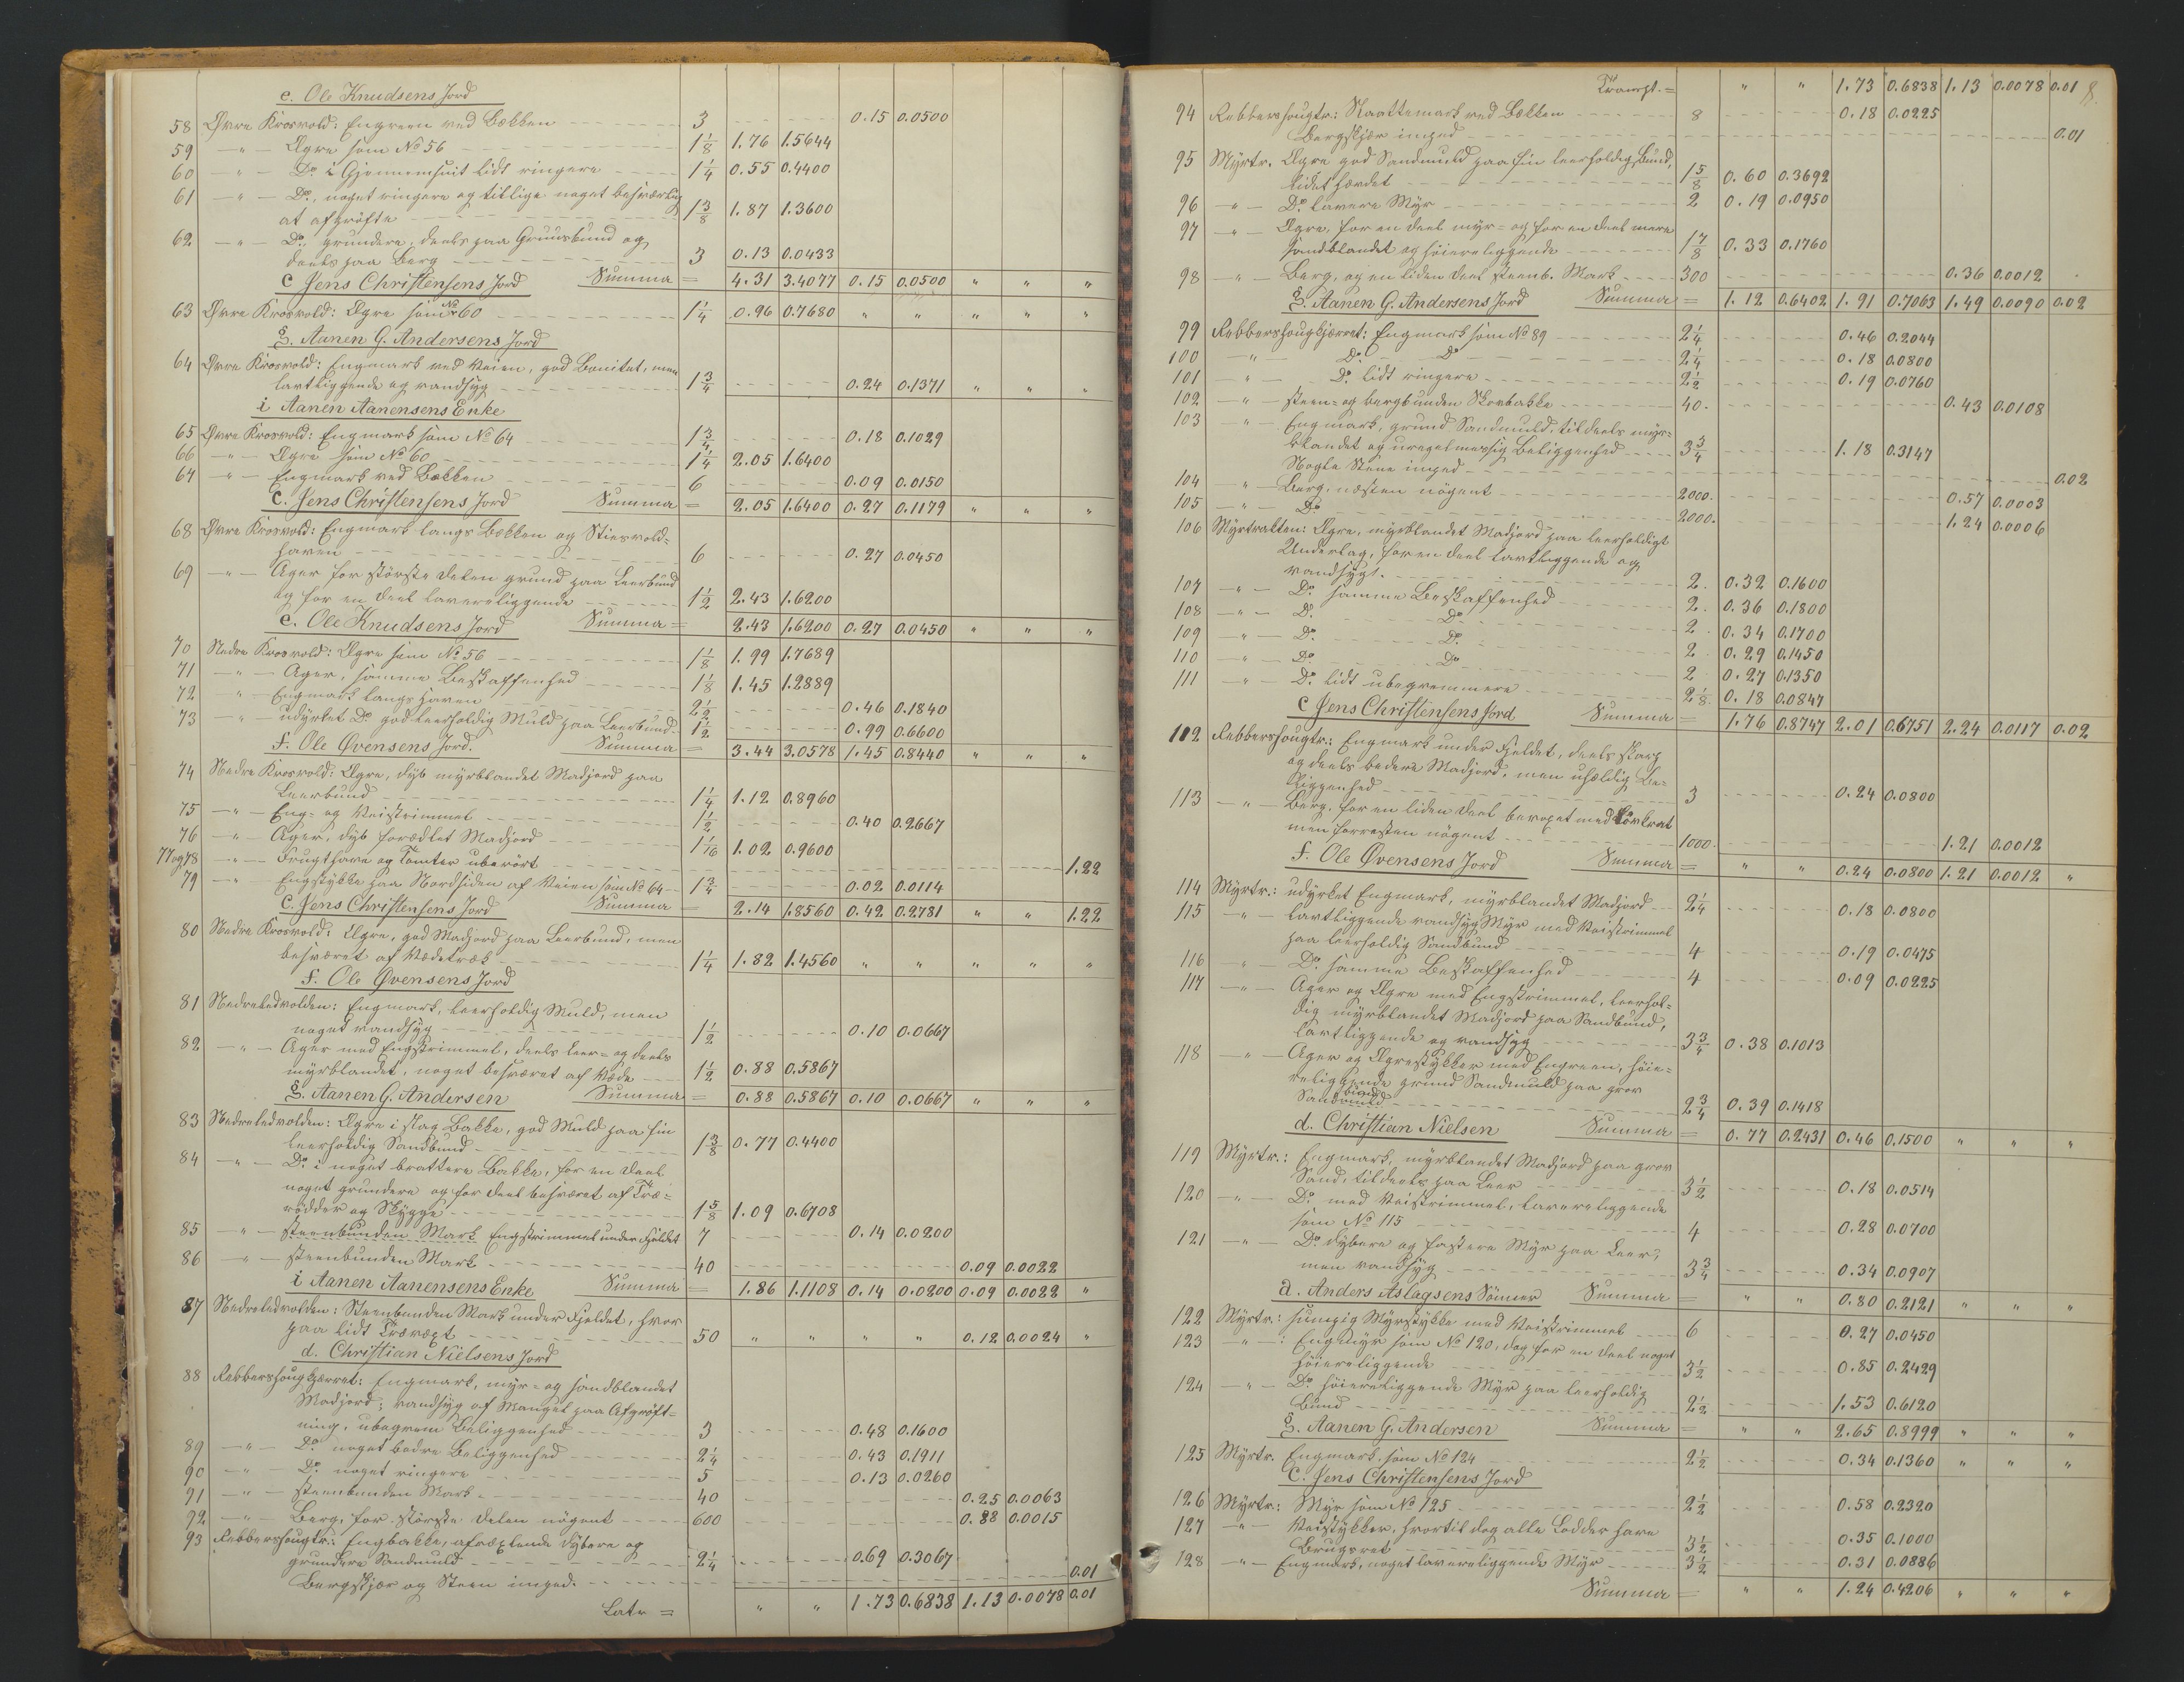 e. Ole Knudsens Jord
58 Øvre Krosvold: Engreen ved Bækken 3 0.15 0.0500
59 —"— Agre som No 56 1 1/8 1.76 1.5644
60 —"— Do i Gjennemsnit lidt ringere 1 1/4 0.55 0.4400
61 —"— Do, noget ringere og tillige noget besværlig
at afgrøfte 1 3/8 1.87 1.3600
62 —"— Do, grundere, deels paa Gruusbund og
deels paa Berg 3 0.13 0.0433
c Jens Christensens Jord Summa = 4.31 3.4077 0.15 0.0500 " " "
63 Øvre Krosvold: Agre som No 60 1 1/4 0.96 0.7680 " " " " "
g. Aanen G. Andersens Jord
64 Øvre Krosvold: Engmark ved Veien, god Bonitet, men
lavtliggende og vandsyg 1 3/4 0.24 0.1371 " " "
i Aanen Aanensens Enke
65 Øvre Krosvold: Engmark som No 64 1 3/4 0.18 0.1029
66 —"— Agre som No 60 1 1/4 2.05 1.6400
67 —"— Engmark ved Bækken 6 0.09 0.0150
c. Jens Christensens Jord Summa = 2.05 1.6400 0.27 0.1179 " " "
68 Øvre Krosvold: Engmark langs Bækken og Stiesvold-
haven 6 0.27 0.0450
69 —"— Ager for største Delen grund paa Leerbund
og for en Deel lavereliggende 1 1/2 2.43 1.6200
e. Ole Knudsens Jord Summa = 2.43 1.6200 0.27 0.0450 " " "
70 Nedre Krosvold: Agre som No 56 1 1/8 1.99 1.7689
71 —"— Ager, samme Beskaffenhed 1 1/8 1.45 1.2889
72 "— Engmark langs Haven 2 1/2 0.46 0.1840
73 —"— udyrket Do god leerholdig Muld paa Leerbund 1 1/2 0.99 0.6600
f. Ole Øvensens Jord. Summa = 3.44 3.0578 1.45 0.8440 " " "
74 Nedre Krosvold: Agre, dyb myrblandet Madjord paa
Leerbund 1 1/4 1.12 0.8960
75 —"— Eng- og Veistrimmel 1 1/2 0.40 0.2667
76 —"— Ager, dyb forædlet Madjord 1 1/16 1.02 0.9600
77og78 —"— Frugthave og Tomter uberørt 1.22
79 —"— Engstykke paa Nordsiden af Veien som No 64 1 3/4 0.02 0.0114
c. Jens Christensens Jord Summa = 2.14 1.8560 0.42 0.2781 " " 1.22
80 Nedre Krosvold: Agre, god Madjord paa Leerbund, men
besværet af Vædetræk 1 1/4 1.82 1.4560 " " " " "
f. Ole Øvensens Jord
81 Nedreledvolden: Engmark, leerholdig Muld, men
noget vandsyg 1 1/2 0.10 0.0667
82 —"— Ager med Engstrimmel, deels Leer- og deels
myrblandet, noget besværet af Væde 1 1/2 0.88 0.5867
g. Aanen G. Andersen Summa = 0.88 0.5867 0.10 0.0667 " " "
83 Nedreledvolden: Agre i slag Bakke, god Muld paa fin
leerholdig Sandbund 1 3/8 0.77 0.4400
84 —"— Do i noget brattere Bakke, for en Deel
noget grundere og for Deel besværet af Træ-
rødder og Skygge 1 5/8 1.09 0.6708
85 —"— steenbunden Mark Engstrimmel under Fjeldet 7 0.14 0.0200
86 —"— steenbunden Mark 40 0.09 0.0022
i Aanen Aanensens Enke Summa = 1.86 1.1108 0.14 0.0200 0.09 0.0022 "
87 Nedreledvolden: Steenbunden Mark under Fjeldet, hvor
paa lidt Trævæxt 50 " " " " 0.12 0.0024 "
d. Christian Nielsens Jord
88 Rebbershougkjærret: Engmark, myr- og sandblandet
Madjord; vandsyg af Mangel paa Afgrøft-
ning, ubegvem Beliggenhed 3 0.48 0.1600
89 —"— Do noget bedre Beliggenhed 2 1/4 0.43 0.1911
90 —"— Do noget ringere 5 0.13 0.0260
91 —"— steenbunden Mark 40 0.25 0.0063
92 —"— Berg, for største Delen nøgent 600 0.88 0.0015
93 Rebbershougtr.: Engbakke, afvexlende dybere og
grundere Sandmuld 2 1/4 0.69 0.3067
Bergskjær og Steen imped. 0.01
Latr = " " 1.73 0.6838 1.13 0.0078 0.01
Transpt. = " " 1.73 0.6838 1.13 0.0078 0.01 8.
94 Rebbershougtr: Slaattemark ved Bækken 8 0.18 0.0225
Bergskjær imped 0.01
95 Myrtr. Agre god Sandmuld paa fin leerholdig Bund,
lidet hævdet 1 5/8 0.60 0.3692
96 —"— Do lavere Myr 2 0.19 0.0950
97 —"— Agre, for en Deel myr- og for en Deel mere
sandblandet og høiereliggende 1 7/8 0.33 0.1760
98 —"— Berg, og en liden Deel steenb. Mark 300 0.36 0.0012
g. Aanen G. Andersens Jord Summa = 1.12 0.6402 1.91 0.7063 1.49 0.0090 0.02
99 Rebbershougkjærret: Engmark som No 89 2 1/4 0.46 0.2044
100 —"— Do Do 2 1/4 0.18 0.0800
101 —"— Do lidt ringere 2 1/2 0.19 0.0760
102 —"— steen- og bergbunden Skovbakke 40. 0.43 0.0108
103 —"— Engmark, grund Sandmuld, tildeels myr-
blandet og uregelmessig Beliggenhed 3 3/4 1.18 0.3147
Nogle Stene imped 0.02
104 —"— Berg, næsten nøgent 2000. 0.57 0.0003
105 —"— Do 2000. 1.24 0.0006
106 Myrtrakten: Agre, myrblandet Madjord paa leerholdigt
Underlag, for en Deel lavtliggende og
vandsygt. 2. 0.32 0.1600
107 —"— Do samme Beskaffenhed 2. 0.36 0.1800
108 —"— Do Do 2. 0.34 0.1700
109 —"— Do Do 2. 0.29 0.1450
110 —"— Do Do 2 0.27 0.1350
111 —"— Do lidt ubegvemmere 2 1/8. 0.18 0.0847
c Jens Christensens Jord Summa = 1.76 0.8747 2.01 0.6751 2.24 0.0117 0.02
112 Rebbershougtr.: Engmark under Fjeldet, deels skarp
og deels bedere Madjord, men uheldig Be-
liggenhed 3 0.24 0.0800
113 —"— Berg, for en liden Deel bevoxet med Løvkrat
men forresten nøgent 1000. 1.21 0.0012
f. Ole Øvensens Jord Summa = " " 0.24 0.0800 1.21 0.0012 "
114 Myrtr.: udyrket Engmark, myrblandet Madjord 2 1/4 0.18 0.0800
115 —"— lavtliggende vandsyg Myr med Veistrimmel
paa leerholdig Sandbund 4 0.19 0.0475
116 "— Do samme Beskaffenhed 4 0.09 0.0225
117 —"— Ager og Agre med Engstrimmel, leerhol-
dig myrblandet Madjord paa Sandbund,
lavtliggende og vandsyg 3 3/4 0.38 0.1013
118 "— Ager og Agrestykker med Engreen, høie-
religgende grund Sandmuld paa grov
Sandbund 2 3/4 0.39 0.1418
d. Christian Nielsen Summa = 0.77 0.2431 0.46 0.1500 " " "
119 Myrtr.: Engmark, myrblandet Madjord paa grov
Sand, tildeels paa Leer 3 1/2 0.18 0.0514
120 —"— Do med Veistrimmel, lavereliggende
som No 115 4 0.28 0.0700
121 —"— Do dybere og fastere Myr paa Leer,
men vandsyg 3 3/4 0.34 0.0907
a. Anders Aslagsens Sönner Summa = " " 0.80 0.2121 " " "
122 Myrtr.: sumpig Myrstykke med Veistrimmel 6 0.27 0.0450
123 —"—: Engmyr som No 120, dog for en Deel noget
høiereliggende 3 1/2 0.85 0.2429
124 —"— Do høiereliggende Myr paa leerholdig
Bund 2 1/2 1.53 0.6120
g. Aanen G. Andersen Summa = " " 2.65 0.8999 " " "
125 Myrtr. Engmark som No 124 2 1/2 0.34 0.1360 " " "
c. Jens Christensens Jord
126 Myrtr.: Myr som No 125 2 1/2 0.58 0.2320
127 —"— Veistykker, hvortil dog alle Lodder have
Brugsret 3 1/2 0.35 0.1000
128 —"— Engmark, noget lavereliggende Myr 3 1/2 0.31 0.0886
Summa = " " 1.24 0.4206 " " "